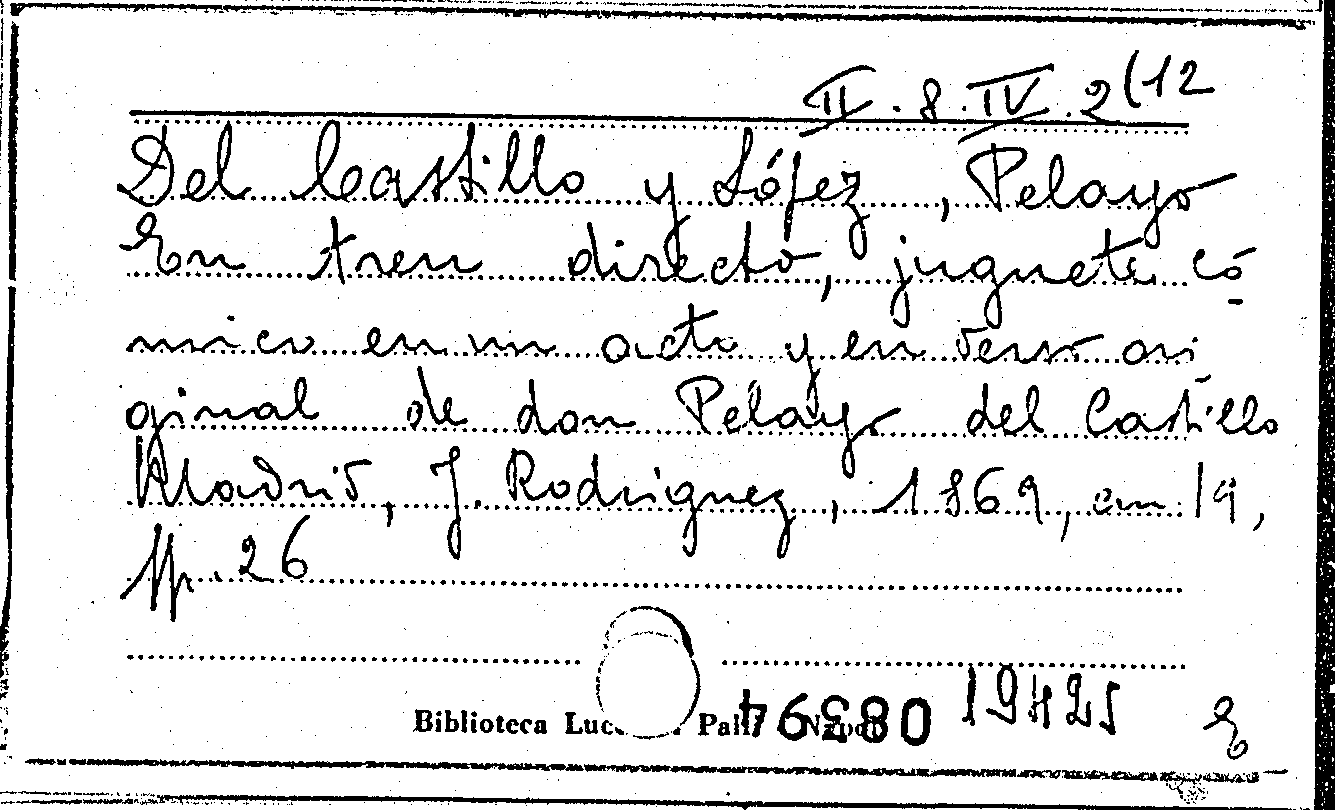 II . 8 . IV . 2 (12
Del Castillo y López, Pelayo
En tren directo, juguete có-
mico en un acto y en verso ori-
ginal de don Pelayo del Castillo
Madrid, J. Rodriguez, 1869, cm 19,
pp. 26
Biblioteca Napoli
19425
E